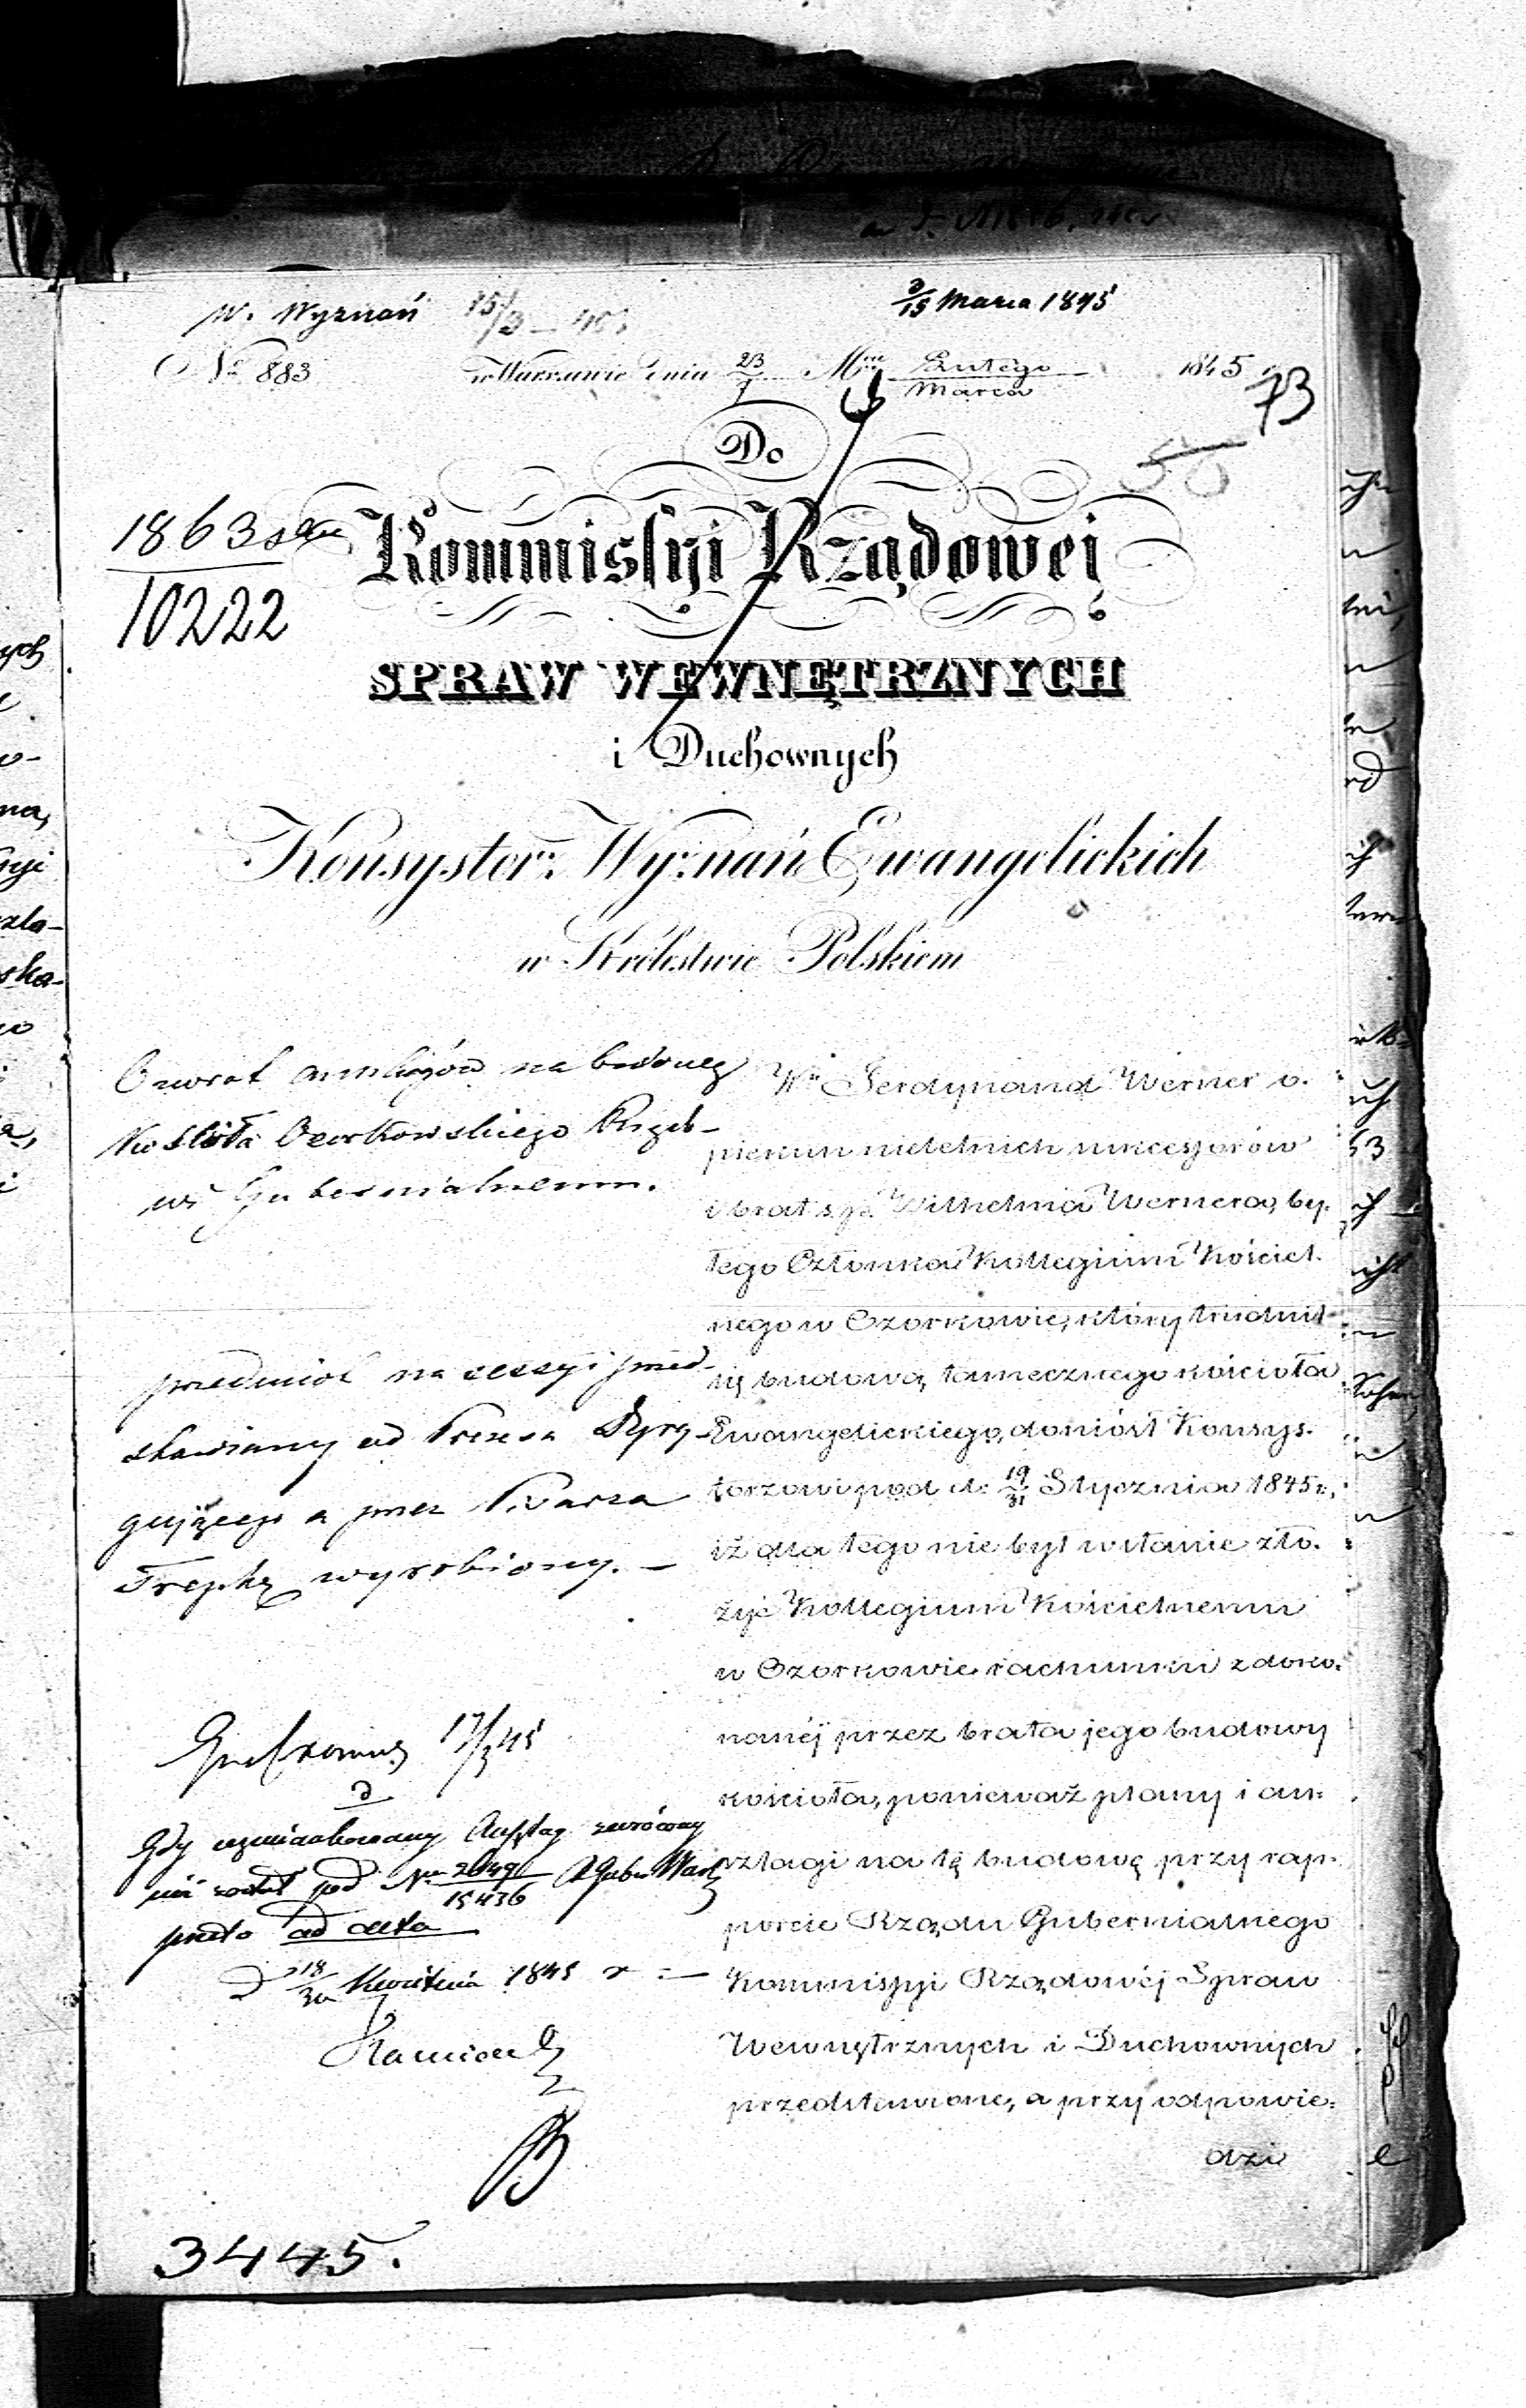 W. Wyznań 15/3 – 45.
3/15 Marca 1845
No 883 w Warszawie dnia 23/7 Mca Lutego/Marca 1845 r.
73
50
Do
1863
10222
Kommissyi Rządowej
SPRAW WEWNĘTRZNYCH
i Duchownych
Konsystorz Wyznań Ewangelickich
w Królestwie Polskiem
Zwrot anszlagów na budowę
Kościoła Ozorkowskiego Rządo-
wi Gubernialnemu.
przedmiot na sessyi przed-
stawiony od Prezesa Dyry-
gującego a przez Pisarza
wyrobiony. –
17/3 45
Gdy Anszlag zwrócony
już został pod No 15436
przeto ad acta
d 18/30 Kwietnia 1845 r
3445.
Wny Ferdynand Werner o-
piekun nieletnich sukcessorów
i brat s.p. Wilhelma Wernera, by-
łego Członka Kollegium Kościel-
nego w Ozorkowie, który trudnił
się budową tamecznego kościoła
Ewangelickiego, doniósł Konsys-
torzowi pod d. 19/31 Stycznia 1845 r.,
iż dla tego nie był w stanie zło-
żyć Kollegium Kościelnemu
w Ozorkowie rachunku z doko-
nanéj przez brata jego budowy
kościoła, ponieważ plany i an-
szlagi na tę budowę przy rap-
porcie Rządu Gubernialnego
Kommissyi Rządowéj Spraw
Wewnętrznych i Duchownych
przedstawione, a przy odpowie-
dzi